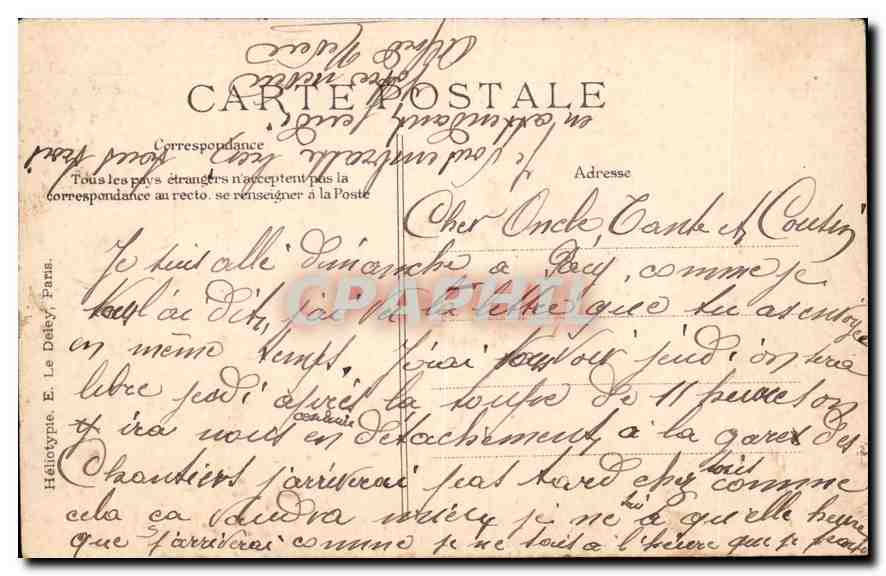 CARTE POSTALE
Correspondance
Tous les pays étrangers n'acceptent pas la
correspondance au recto. se renseigner à la Poste
Adresse
Héliotypie. E. Le Deley, Paris.
CPAPHIL
Cher Oncle, Tante et Cousin
Je suis allé dimanche à comme je
l'ai dit, j'ai la lettre que tu as envoyée
en même temps, j'irai voir jeudi on sera
libre jeudi après la soupe de 11 heure on
y ira nous en détachement, à la gare des
Chantiers j'arriverai pas tard comme
cela ça vaudra mieux je ne à quelle heure
que j'arriverai comme je ne sais à l'heure que je
Je vous embrasse bien tous trois
en attendant jeudi
votre neveu
Alfred